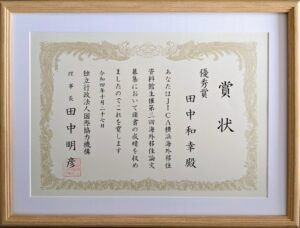 賞状
優秀賞
田中和幸殿
あなたはJICA横浜海外移住
資料館主催第三回海外移住論文
募集において頭書の成績を収め
ましたのでこれを賞します
令和四年十月二十七日
独立行政法人国際協力機構
理事長 田中明彦